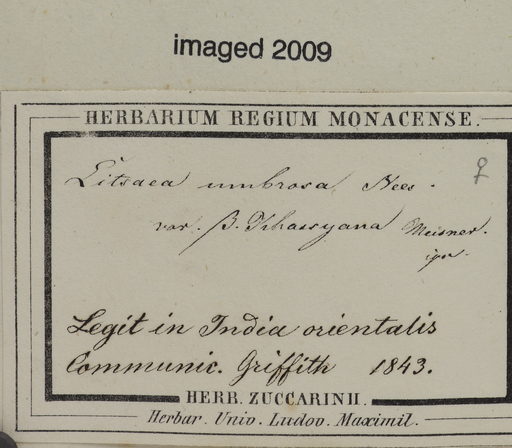 imaged 2009
HERBARIUM REGIUM MONACENSE.
Litsaea umbrosa Nees. ♀
var. β. Khassyana Meisner.
ipse.
Legit in India orientalis
Communic. Griffith 1843.
HERB. ZUCCARINII.
Herbar. Univ. Ludov. Maximil.